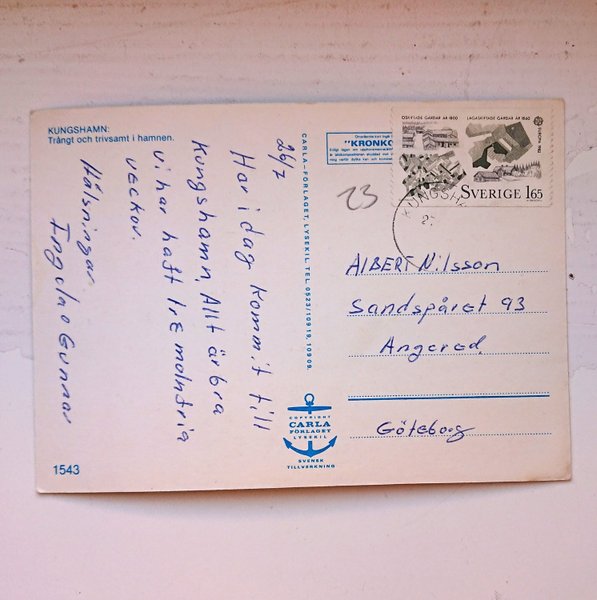 KUNGSHAMN:
Trångt och trivsamt i hamnen.
26/7
Har idag kommit till
Kungshamn, Allt är bra
vi har haft tre molnfria
veckor.
Hälsningar
Ingela o Gunnar
1543
CARLA-FÖRLAGET, LYSEKIL, TEL. 0523/109 19, 109 09.
COPYRIGHT
CARLA
FÖRLAGET
LYSEKIL
SVENSK
TILLVERKNING
"KRONKO
23
OSKIFTADE GÅRDAR ÅR 1800
LAGASKIFTADE GÅRDAR ÅR 1860
EUROPA
SVERIGE 1.65
KUNGSH
2
ALBERT Nilsson
Sandspåret 93
Angered.
Göteborg